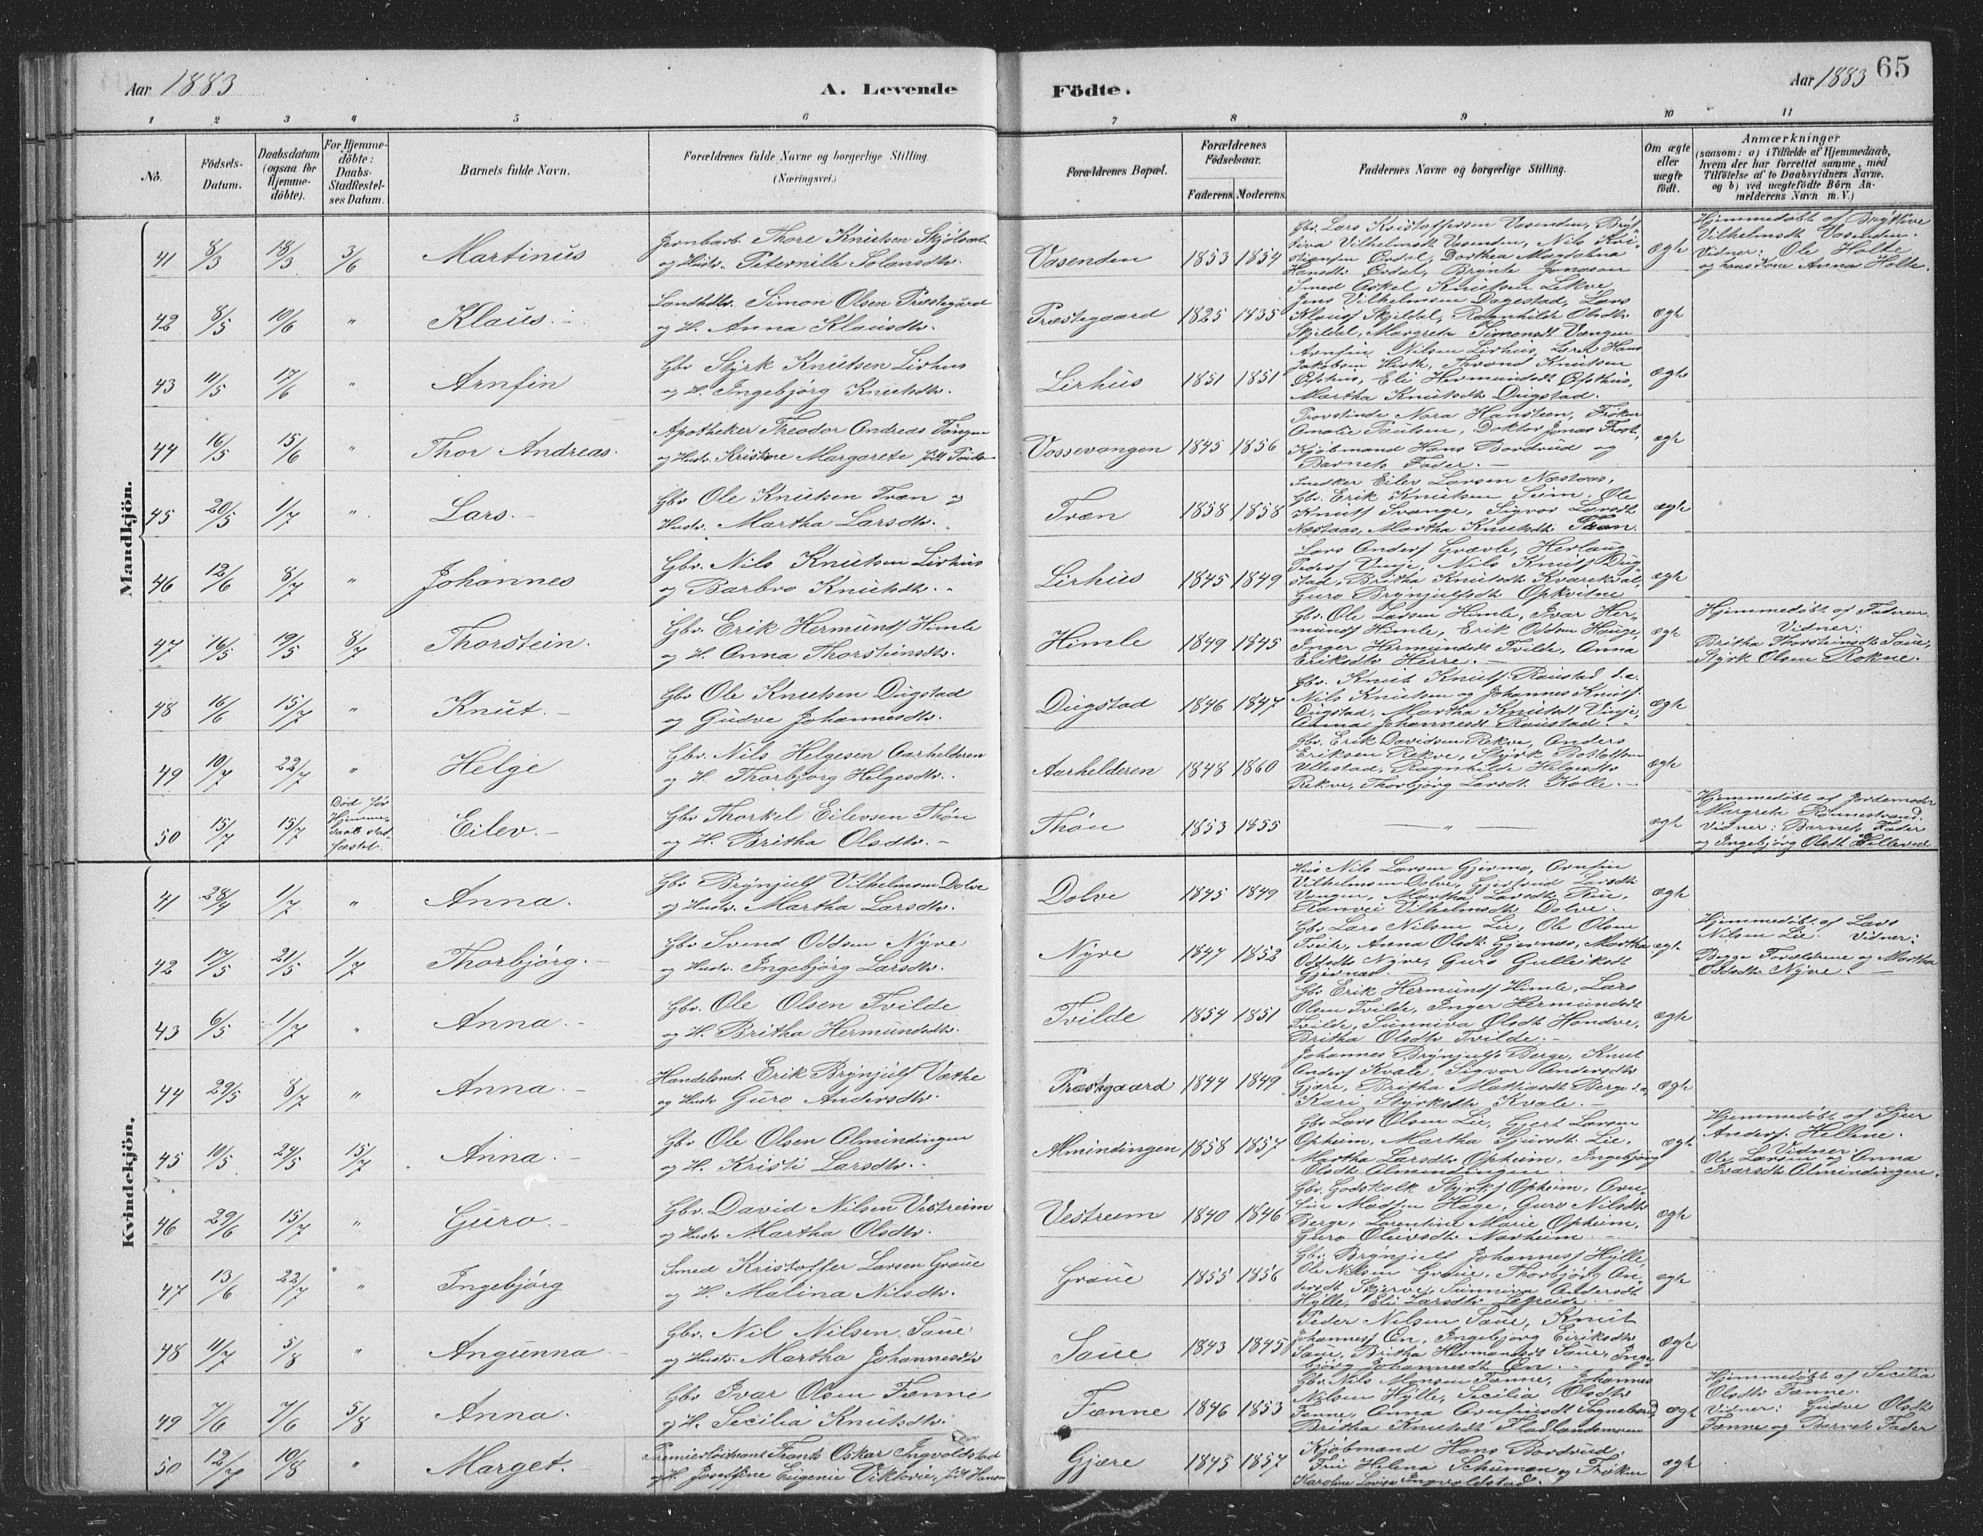 Aar 1883
A. Levende
Födte.
Aar 1883
65
1 2 3 4 5 6 7 8 9 10 11
No.
Födsels-Datum.
Daabsdatum (ogsaa for Hjemmedöbte).
For Hjemmedöbte: Daabs-Stadfestelses Datum.
Barnets fulde Navn.
Forældrenes fulde Navne og borgerlige Stilling (Næringsvei.)
Forældrenes Bopæl.
Forældrenes Födselsaar.
Faderens. Moderens.
Faddernes Navne og borgerlige Stilling.
Om ægte eller uægte födt.
Anmærkninger
(saasom: a) i Tilfælde af Hjemmedaab, hvem der har forrettet samme, med Tilföielse af to Daabsvidners Navne, og b) ved uægtefödte Börn Anmelderens Navn m.V.)
Mandkjön.
41 8/3 18/3 3/6 Martinus
Jernbarb. Thore Knutsen
og Hust. Peternille
Vasenden 1853 1854
Gbr. Lars Kristoffersen Vasenden,
Vilhelmsdt Vasenden, Nils
Dorthea Magdalena
ægte
Hjemmedöbt af
Vilhelmsdt Vasenden.
Vidner: Ole Holte
og Anna Holte.
42 8/5 10/6 " Klaus.
Simon Olsen Præstegård
og H. Anna Klausdtr.
Præstegaard 1825 1835
Smed Askel Knutsen Lekve,
Jens Vilhelmsen Dagestad, Lars
Klaus Skjeldal, Ragnhilde Olsdtr
Skjeldal, Margreta Simonsdt Vangen
ægte
43 11/5 17/6 " Arnfin
Gbr Styrk Knutsen Lirhus
og H. Ingebjörg Knutsdtr.
Lirhus 1851 1851
Arnfin Nilsen Lirhus,
Jakobsen Knutsen
Eli Hermundsdt
Martha Knutsdt Dugstad.
ægte
44 16/5 15/6 " Thor Andreas.
Apotheker Theodor Andreas
og Hust. Kristine Margarete
Vossevangen 1845 1856
Provstinde Nora Hansteen, Fröken
Amalie Paulsen, Doktor Jonas
Kjöbmand Hans Bordvud og
Barnets Fader.
ægte
45 20/5 1/7 " Lars.
Gbr Ole Knutsen Træn og
Hust. Martha Larsdtr.
Træn 1858 1858
Snedker Eilev Larsen Næstaas,
Gbr. Erik Knutsen Seim, Ole
Knuts Svange, Sigvor Larsdt
Næstaas, Martha Knutsdt Træn.
ægte
46 12/6 8/7 " Johannes
Gbr. Nils Knutsen Lirhus
og Barbro Knutsdtr.
Lirhus 1845 1849
Lars Anders Græve, Herlaug
Peders Vinje, Nils Knuts Dug-
stad, Britha Knutsdt
Guro Brynjulfsdt Opkvitne
ægte
47 16/5 19/5 8/7 Thorstein.
Gbr. Erik Hermunds Himle
og H. Anna Thorsteinsdtr.
Himle 1849 1845
Gbr. Ole Larsen Himle, Ivar Her-
munds Himle, Erik Oddsen Houge,
Inger Hermundsdt Tvilde, Anna
Eriksdtr Herre.
ægte
Hjemmedöbt af Faderen
Vidner:
Britha Thorsteinsdt Saue,
Styrk Olsen Rokne.
48 16/6 15/7 " Knut.
Gbr Ole Knutsen Dugstad
og Gudve Johannesdtr.
Dugstad 1846 1847
Gbr. Knut Knuts Raustad
Nils Knutsen og Johannes Knuts
Dugstad, Martha Knutsdt Vinje,
Anna Johannesdt Raustad
ægte
49 10/7 22/7 " Helge
Gbr. Nils Helgesen Aarhelderen
og H. Thorbjörg Helgesdtr.
Aarhelderen 1848 1860
Gbr. Erik Davidsen Rekve, Anders
Eriksen Rekve, Styrk Bottolfsen
Ullestad, Ragnhilde Helgesdt
Rekve, Thorbjörg Larsdt Kolle.
ægte
50 15/7 15/7 Död för Hjemme-daab stad-fæstet. Eilev.
Gbr. Thorkel Eilevsen Thön
og H. Britha Olsdtr.
Thön 1853 1855
— " —
ægte
Hjemmedöbt af Jordemoder
Margreta Rönnestrand.
Vidner: Barnets Fader
og Ingebjörg Olsdt Hellevud
Kvindekjön.
41 28/4 1/7 " Anna.
Gbr Brynjulf Vilhelmsen Dolve
og Hust. Martha Larsdtr.
Dolve 1845 1849
Nils Larsen Gjerme, Arnfin
Vilhelmsen Dolve, Gjertrud Larsdt
Vangen, Martha Larsdt
Ranvei Vilhelmsdt Dolve.
ægte
42 17/5 21/5 1/7 Thorbjörg.
Gbr Svend Oddsen Nyre
og Hust. Ingebjörg Larsdtr.
Nyre 1847 1853
Gbr Lars Nilsen Lie, Ole Olsen
Tvite, Anna Olsdt Gjernes, Martha
Oddsdt Nyre, Guro Gulleiksdt
Gjernes.
ægte
Hjemmedöbt af Lars
Nilsen Lie. Vidner:
Begge Forældrene og Martha
Oddsdt Nyre.
43 6/5 1/7 " Anna.
Gbr. Ole Olsen Tvilde
og H. Britha Hermundsdtr.
Tvilde 1854 1851
Gbr. Erik Hermunds Himle, Lars
Olsen Tvilde, Inger Hermundsdt
Tvilde, Sunniva Olsdt Hondve,
Britha Olsdtr Tvilde.
ægte
44 29/5 8/7 " Anna.
Handelsmd. Erik Brynjulfs Væthe
og Hust Guro Andersdtr.
Præstegaard 1844 1849
Johannes Brynjulfs Berge, Knut
Anders Kvale, Sigvor Andersdtr
Gjære, Britha Mathiasdt Berge
Kari Styrksdtr Kvale.
ægte
45 10/5 24/5 15/7 Anna.
Gbr. Ole Olsen Almindingen
og H. Kristi Larsdtr.
Almindingen 1858 1857
Gbr. Lars Olsen Lie, Gjert Larsen
Opheim, Martha Sjursdt Lie,
Martha Larsdt Opheim, Ingebjörg
Olsdt Almindingen.
ægte
Hjemmedöbt af Sjur
Anders Hellene.
Vidner:
Ole Larsen og Anna
Ivarsdt Almindingen.
46 29/6 15/7 " Guro.
Gbr. David Nilsen Vestreim
og Hust Martha Olsdtr.
Vestreim 1840 1846
Gbr. Godskalk Styrks Opheim,
Madsen Hage, Guro Nilsdt
Berge, Larentine Marie Opheim,
Guro Olavsdt Norheim.
ægte
47 13/6 22/7 " Ingebjörg
Smed Kristoffer Larsen Graue
og H. Malina Nilsdtr.
Graue 1855 1856
Gbr. Brynjulf Johannes Hylle,
Ole Nilsen Graue, Thorbjörg An-
dersdt Skjerve, Sunniva Andersdt
Hylle, Eli Larsdtr Legreide.
ægte
48 11/7 5/8 " Angunna.
Gbr. Nil Nilsen Saue
og Hust. Martha Johannesdtr
Saue 1843 1845
Peder Nilsen Saue, Knut
Johannes Øen, Ingebjörg Eiriksdtr
Saue, Britha Hermundsdt Saue, Inge-
björg Johannesdt Øen.
ægte
49 7/6 7/6 5/8 Anna.
Gbr Ivar Olsen Fenne
og H. Secilia Knutsdtr.
Fenne 1846 1853
Gbr. Nils Monsen Fenne, Johannes
Nilsen Hylle, Secilia Olsdtr
Fenne, Anna Arnfinsdt Sognebord
Britha Knutsdt Fladlandsmoen
ægte
Hjemmedöbt af Secilia
Olsdt Fenne.
Vidner: Gudve Olsdt
Fenne og Barnets Fader
50 12/7 10/8 " Marget.
Premierlöitnant Frants Oskar Ingvoldstad
og H. Joseffine Eugenie Viktoria, född Hansen
Gjære 1845 1857
Kjöbmand Hans Bordvud,
Fru Helena Schuman og Fröken
Karoline Lovise Ingvoldstad.
ægte